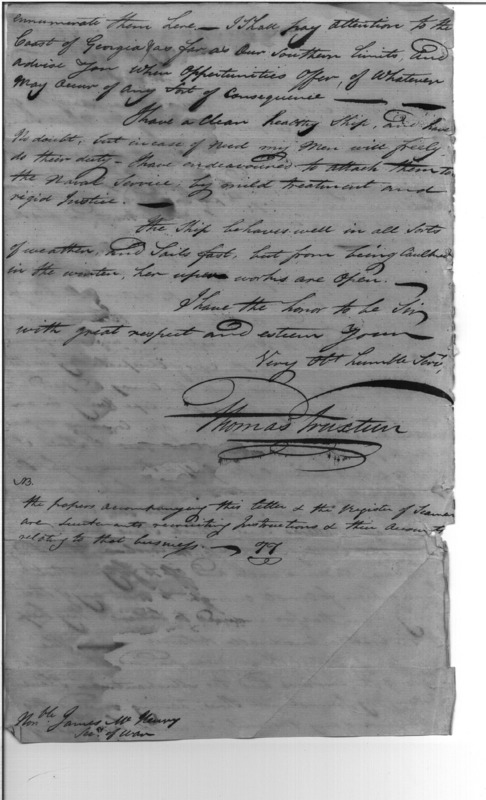 ennumerate them here — I Shall pay attention to the
Coast of Georgia &a. far as Our Southern Limits, and
advise You when Opportunities Offer, of Whatever
May Occur of Any Sort of Consequence —
I have a Clean healthy Ship, and have
no doubt, but in case of Need my Men will freely
do their duty — I have endeavoured to attach them to
the Naval Service, by mild treatment and
rigid Justice. —
the Ship behaves well in all Sorts
of weather, and Sails fast, but from being Caulked
in the winter, her upper works are Open. —
I have the honor to be Sir
with great respect and esteem Your
Very Obt. humble Servt,
Thomas Truxtun
NB.
the papers accompanying this letter & the Register of Seamen
are Lieutenants recruiting Instructions & their Accounts
relating to that business. — TT
Honble. James McHenry
Secy. of War